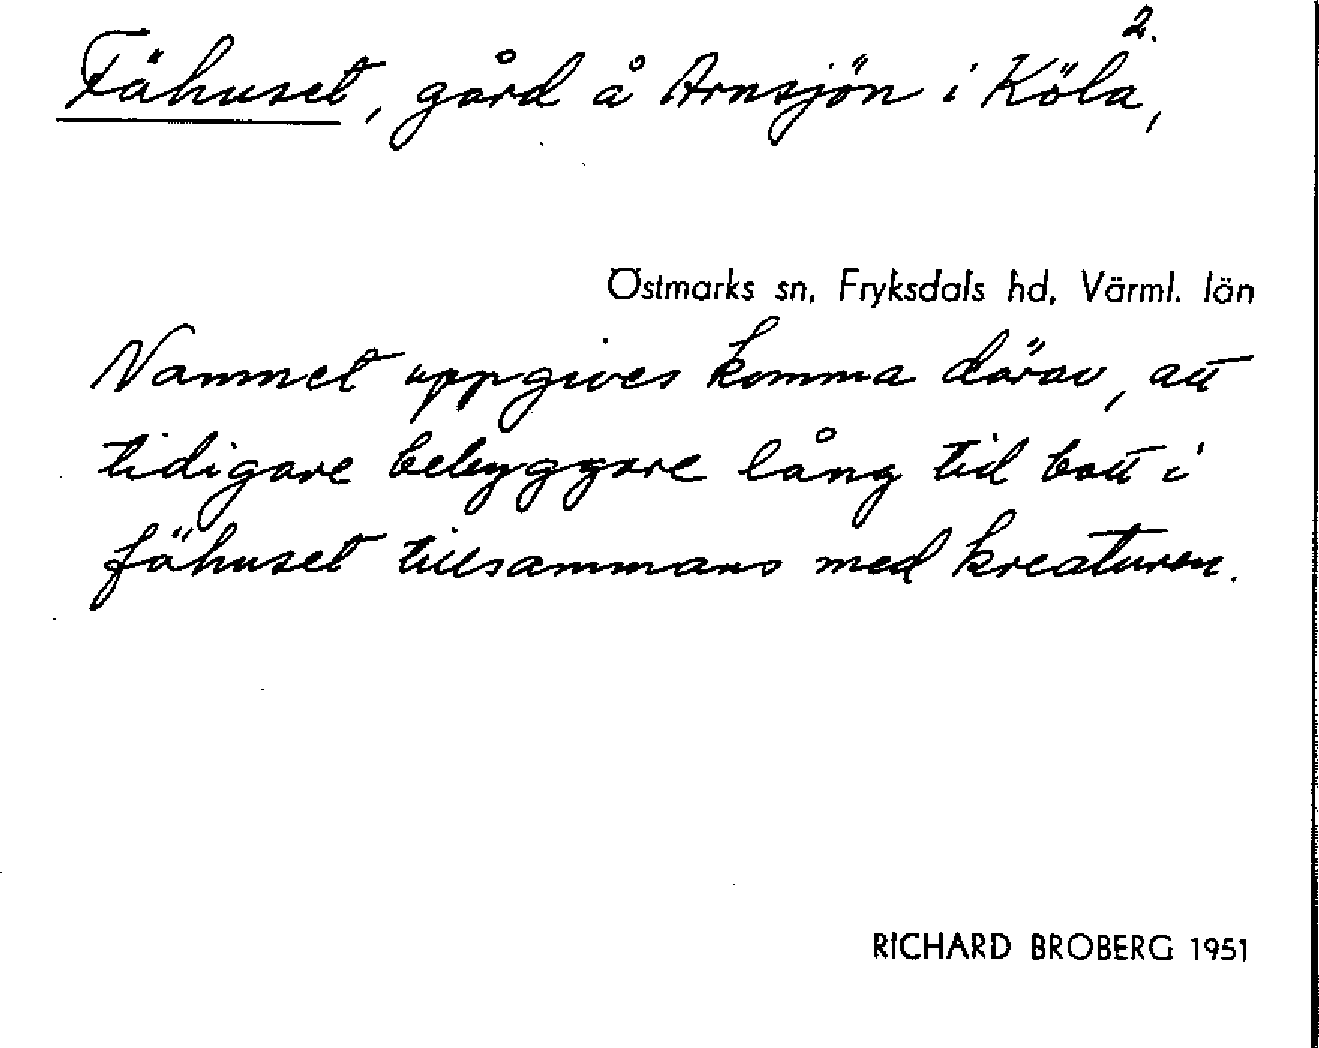 2.
Fähuset, gård å Arnsjön i Köla,
Östmarks sn, Fryksdals hd, Värml. län
Namnet uppgives komma därav, att
tidigare bebyggare lång tid bott i
fähuset tillsammans med kreaturen.
RICHARD BROBERG 1951